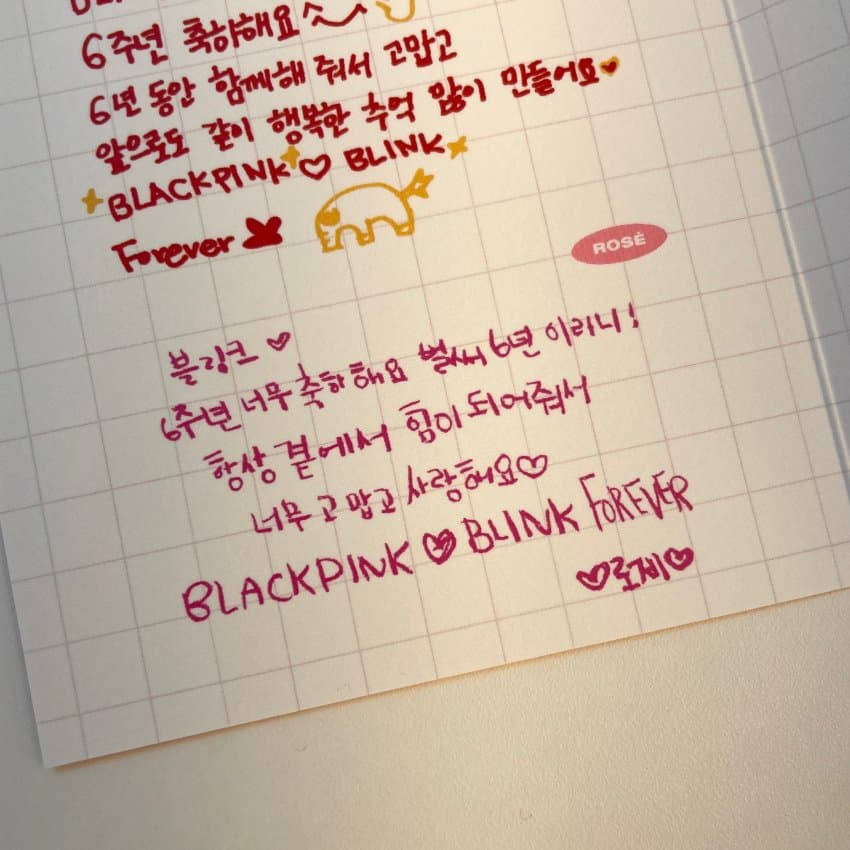 6주년 축하해요
6년 동안 함께해 줘서 고맙고
앞으로도 같이 행복한 추억 많이 만들어요♥
BLACKPINK ♡ BLINK
Forever
ROSÉ
블링크 ♡
6주년 너무 축하해요 벌써 6년 이라니!
항상 곁에서 힘이 되어줘서
너무 고맙고 사랑해요♡
BLACKPINK ♡ BLINK FOREVER
♡로제♡